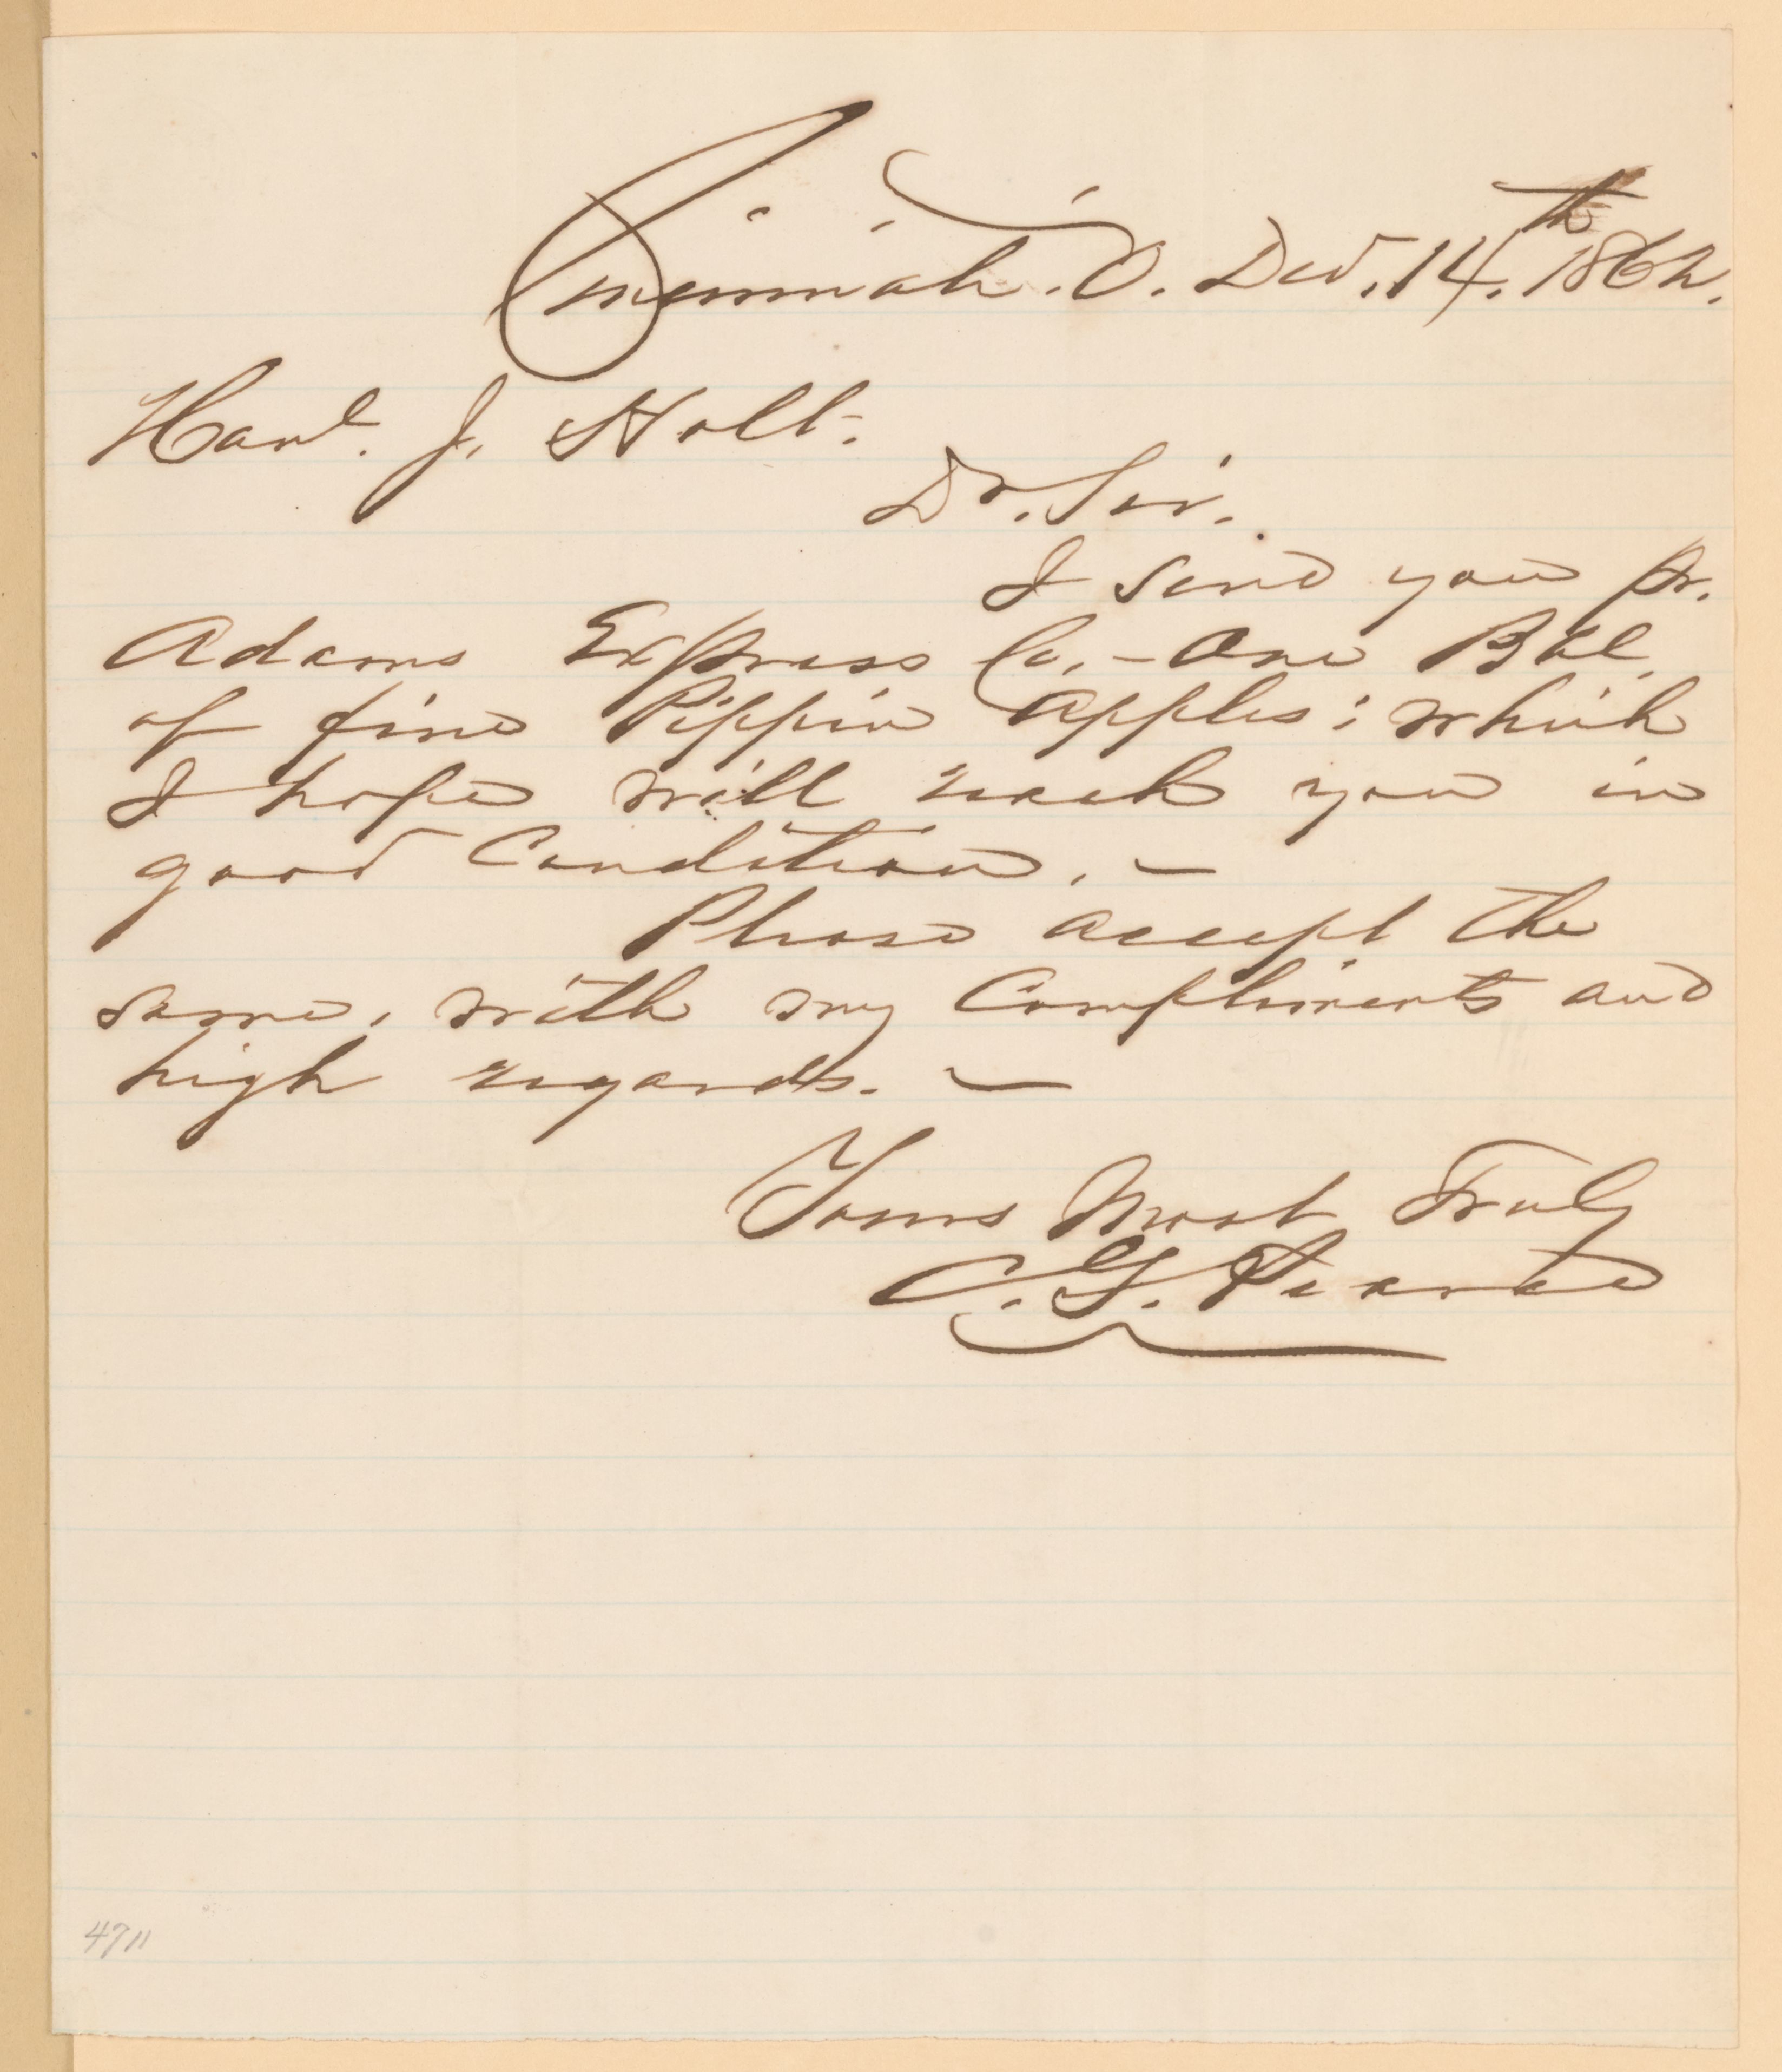 Cincinnati. O. Dec. 14th. 1862.
Honl. J. Holt.
Dr. Sir.
I send you pr.
Adams Express Co. - One Bbl.
of fine Pippin Apples; which
I hope will reach you in
good Condition. -
Please accept the
same, with my Compliments and
high regards. -
Yours Most Truly
C. G. Pearce
4711